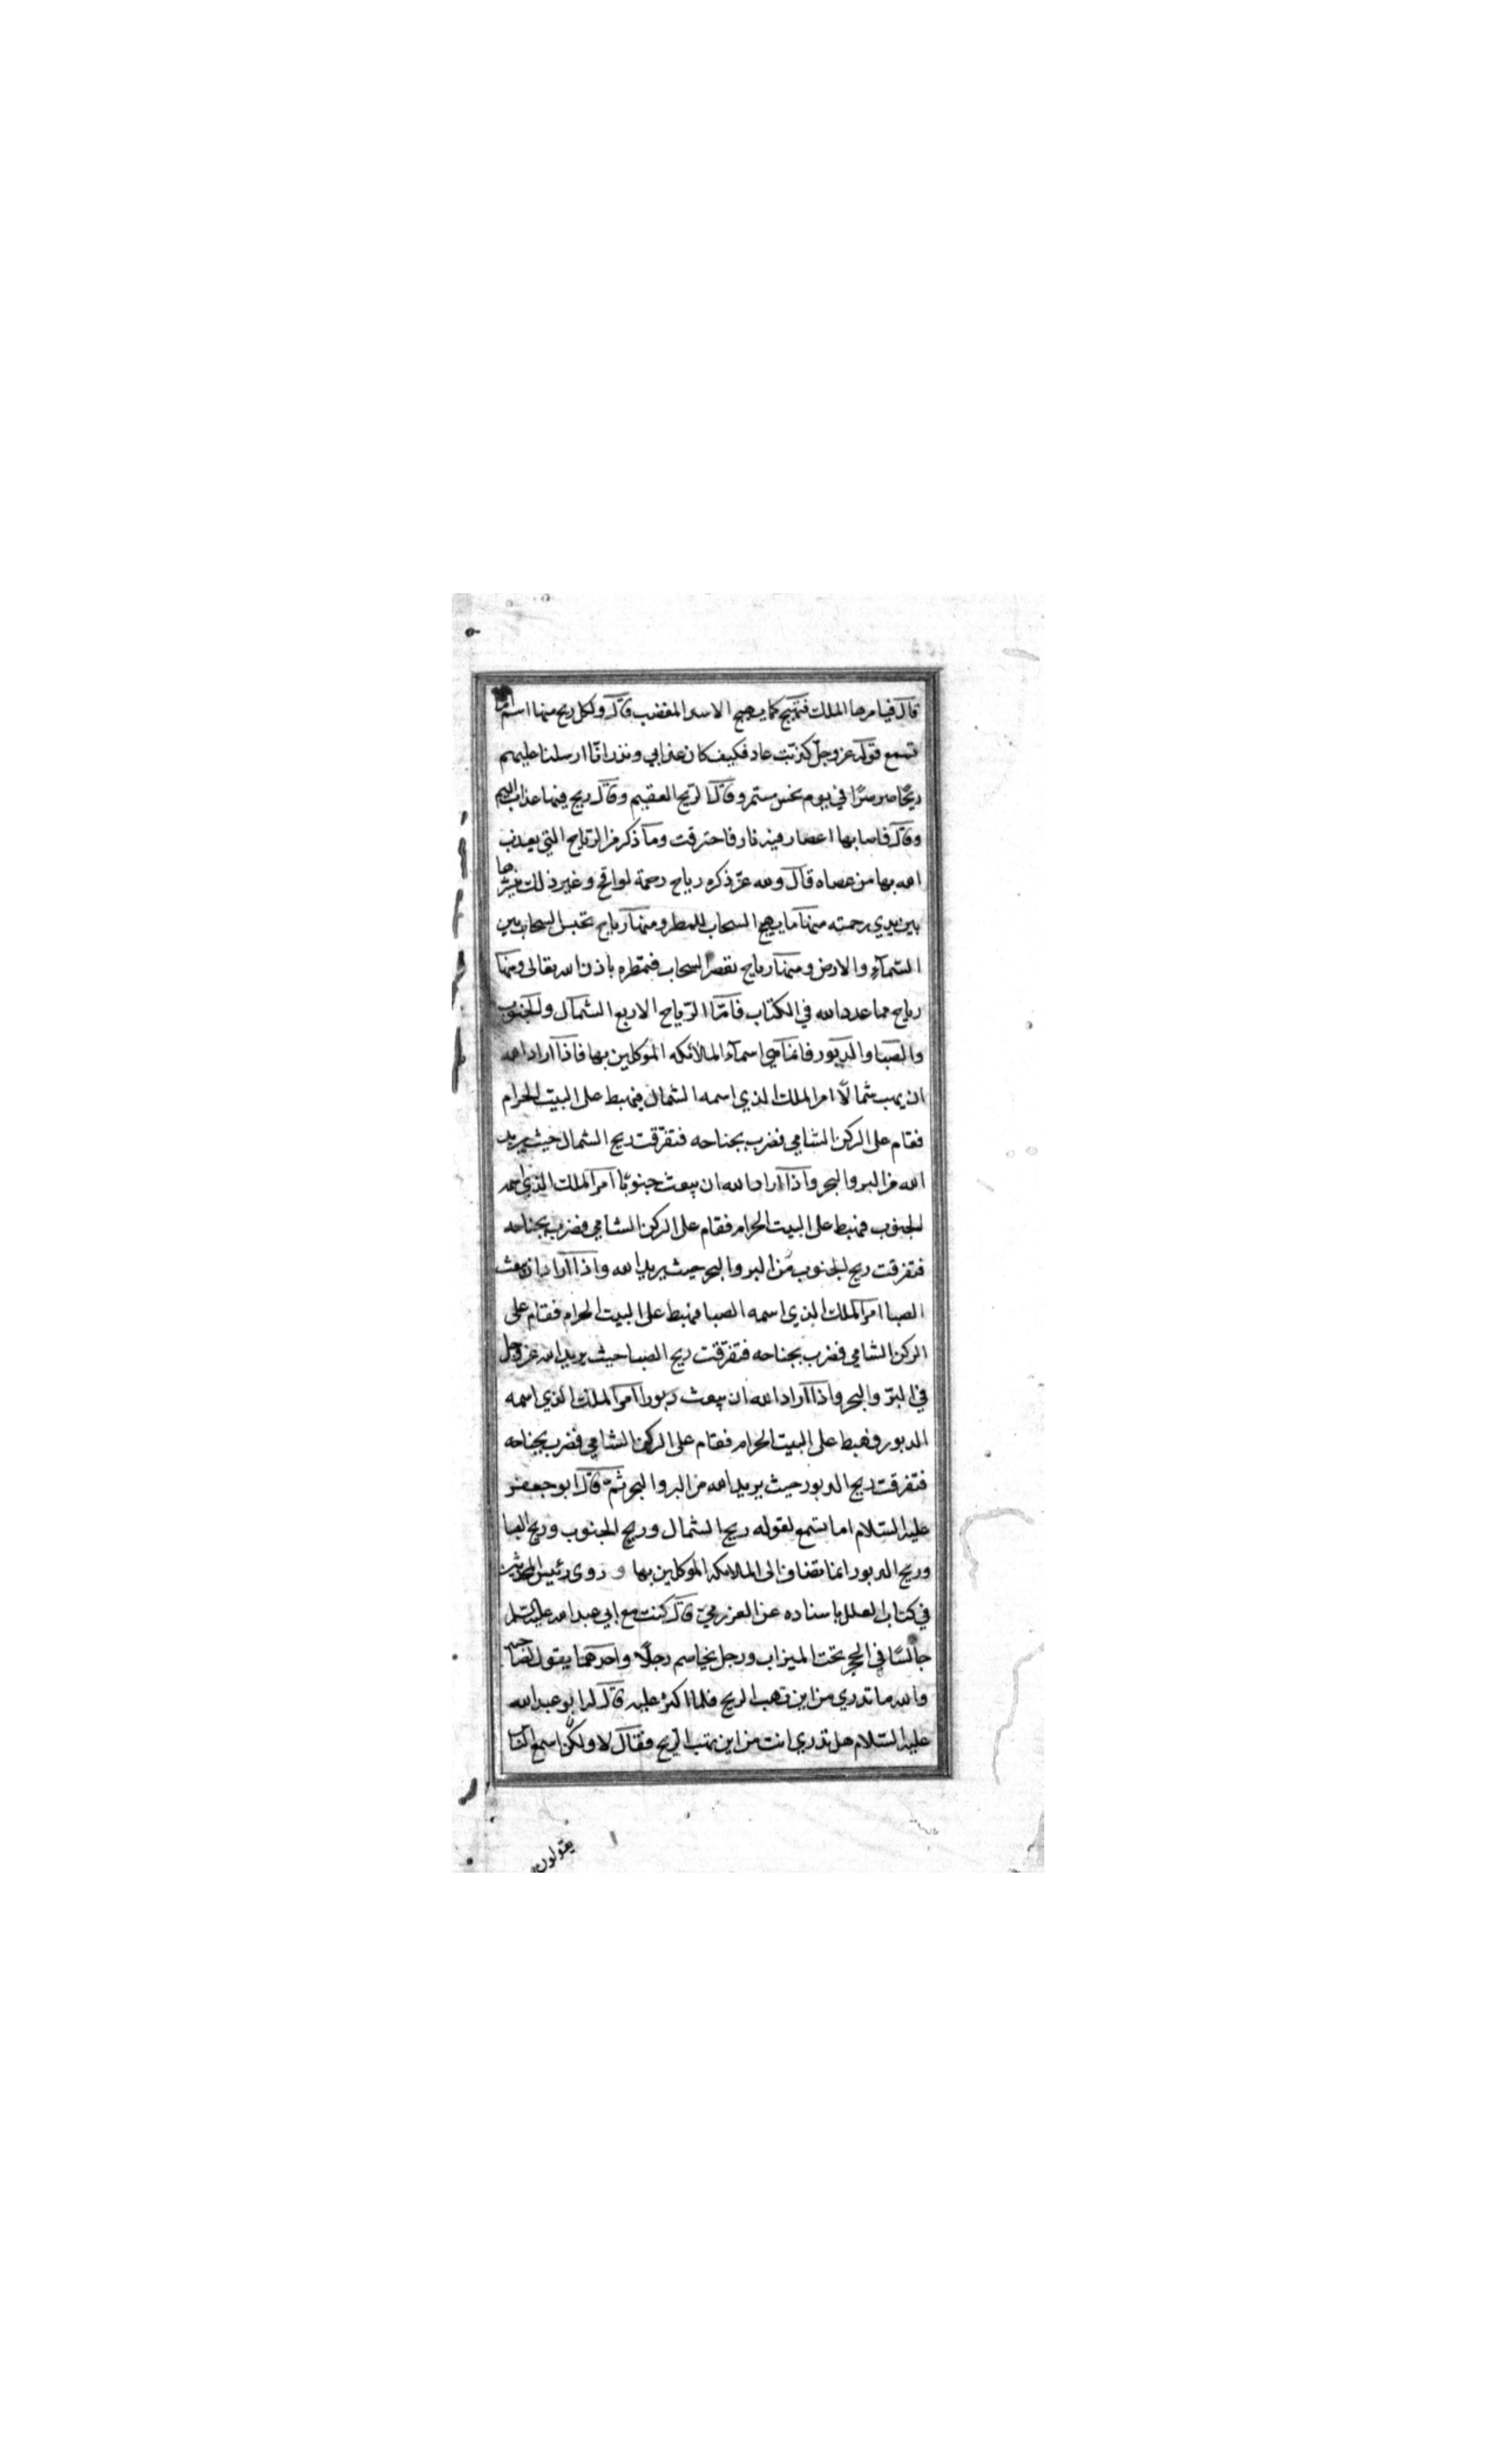 قال فيامرها الملك فتهيج كما يهيج الاسد المغضب قال ولكل ريح منها اسم اما
تسمع قوله عز وجل كذبت عاد فكيف كان عذابي ونذر انا ارسلنا عليهم
ريحا صرصرا في يوم نحس مستمر وقال الريح العقيم وقال ريح فيها عذاب اليم
وقال فاصابها اعصار فيه نار فاحترقت وما ذكر من الرياح التي يعذب
الله بها من عصاه قال ولله عز ذكره رياح رحمة لواقح وغير ذلك ينشرها
بين يدي رحمته منها ما يهيج السحاب للمطر ومنها رياح تحبس السحاب بين
السماء والارض ومنها رياح تعصر السحاب فتمطره باذن الله تعالى ومنها
رياح مما عدد الله في الكتاب فاما الرياح الاربع الشمال والجنوب
والصبا والدبور فانما هي اسماء الملائكة الموكلين بها فاذا اراد الله
ان يهب شمالا امر الملك الذي اسمه الشمال فيهبط على البيت الحرام
فقام على الركن الشامي فضرب بجناحه فتفرقت ريح الشمال حيث يريد
الله من البر والبحر واذا اراد الله ان يبعث جنوبا امر الملك الذي اسمه
الجنوب فهبط على البيت الحرام فقام على الركن الشامي فضرب بجناحه
فتفرقت ريح الجنوب من البر والبحر حيث يريد الله واذا اراد ان يبعث
الصبا امر الملك الذي اسمه الصبا فهبط على البيت الحرام فقام على
الركن الشامي فضرب بجناحه فتفرقت ريح الصبا حيث يريد الله عز وجل
في البر والبحر واذا اراد الله ان يبعث دبورا امر الملك الذي اسمه
الدبور فهبط على البيت الحرام فقام على الركن الشامي فضرب بجناحه
فتفرقت ريح الدبور حيث يريد الله من البر والبحر ثم قال ابو جعفر
عليه السلام اما تسمع لقوله ريح الشمال وريح الجنوب وريح الصبا
وريح الدبور انما تضاف الى الملائكة الموكلين بها و روى رئيس المحدثين
في كتاب العلل باسناده عن العزرمي قال كنت مع ابي عبد الله عليه السلم
جالسا في الحجر تحت الميزاب ورجل يخاصم رجلا واحدهما يقول لصاحبه
والله ما تدري من اين تهب الريح فلما اكثر عليه قال له ابو عبد الله
عليه السلام هل تدري انت من اين تهب الريح فقال لا ولكن اسمع الناس
يقولون